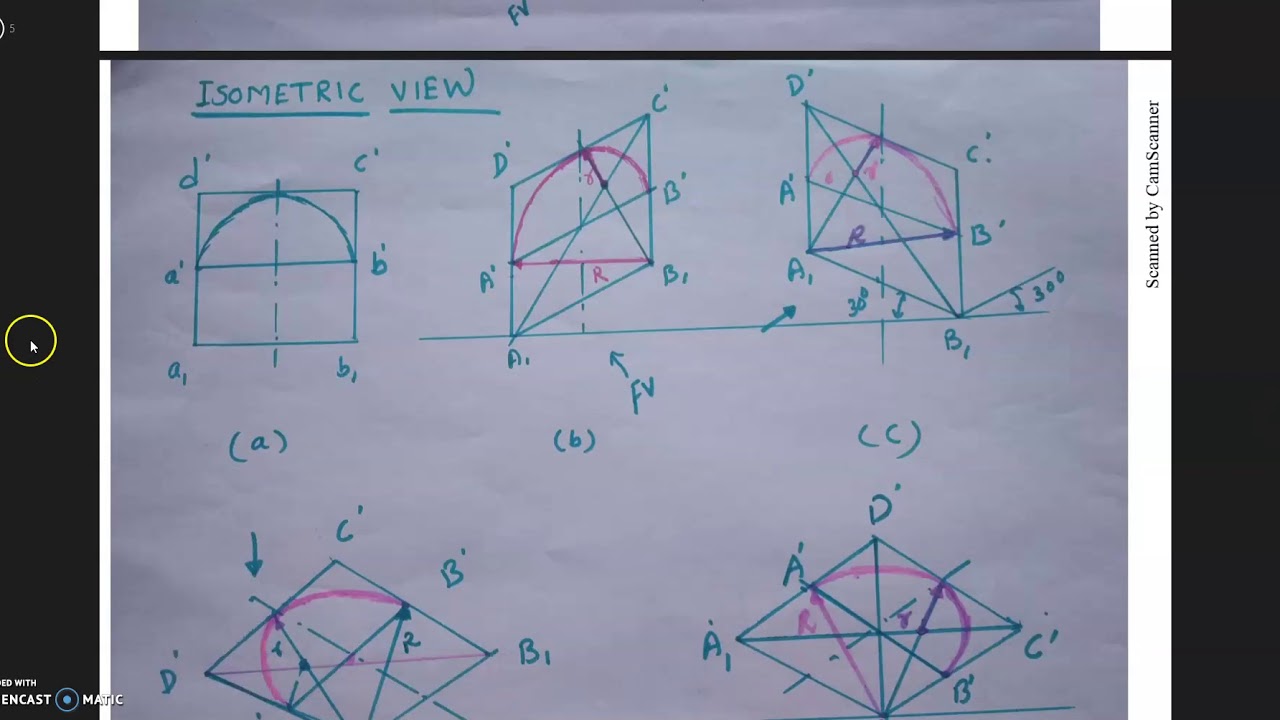 5
FV
ISOMETRIC VIEW
d' c'
a' b'
a₁ b₁
(a)
C'
D'
r
B'
A' R B₁
A₁
FV
(b)
D'
C'
A' r
R B'
A₁
30° 30°
B₁
(C)
Scanned by CamScanner
C'
B'
r R
D' B₁
D'
A'
R r
A₁ C'
B'
ED WITH
ENCAST MATIC